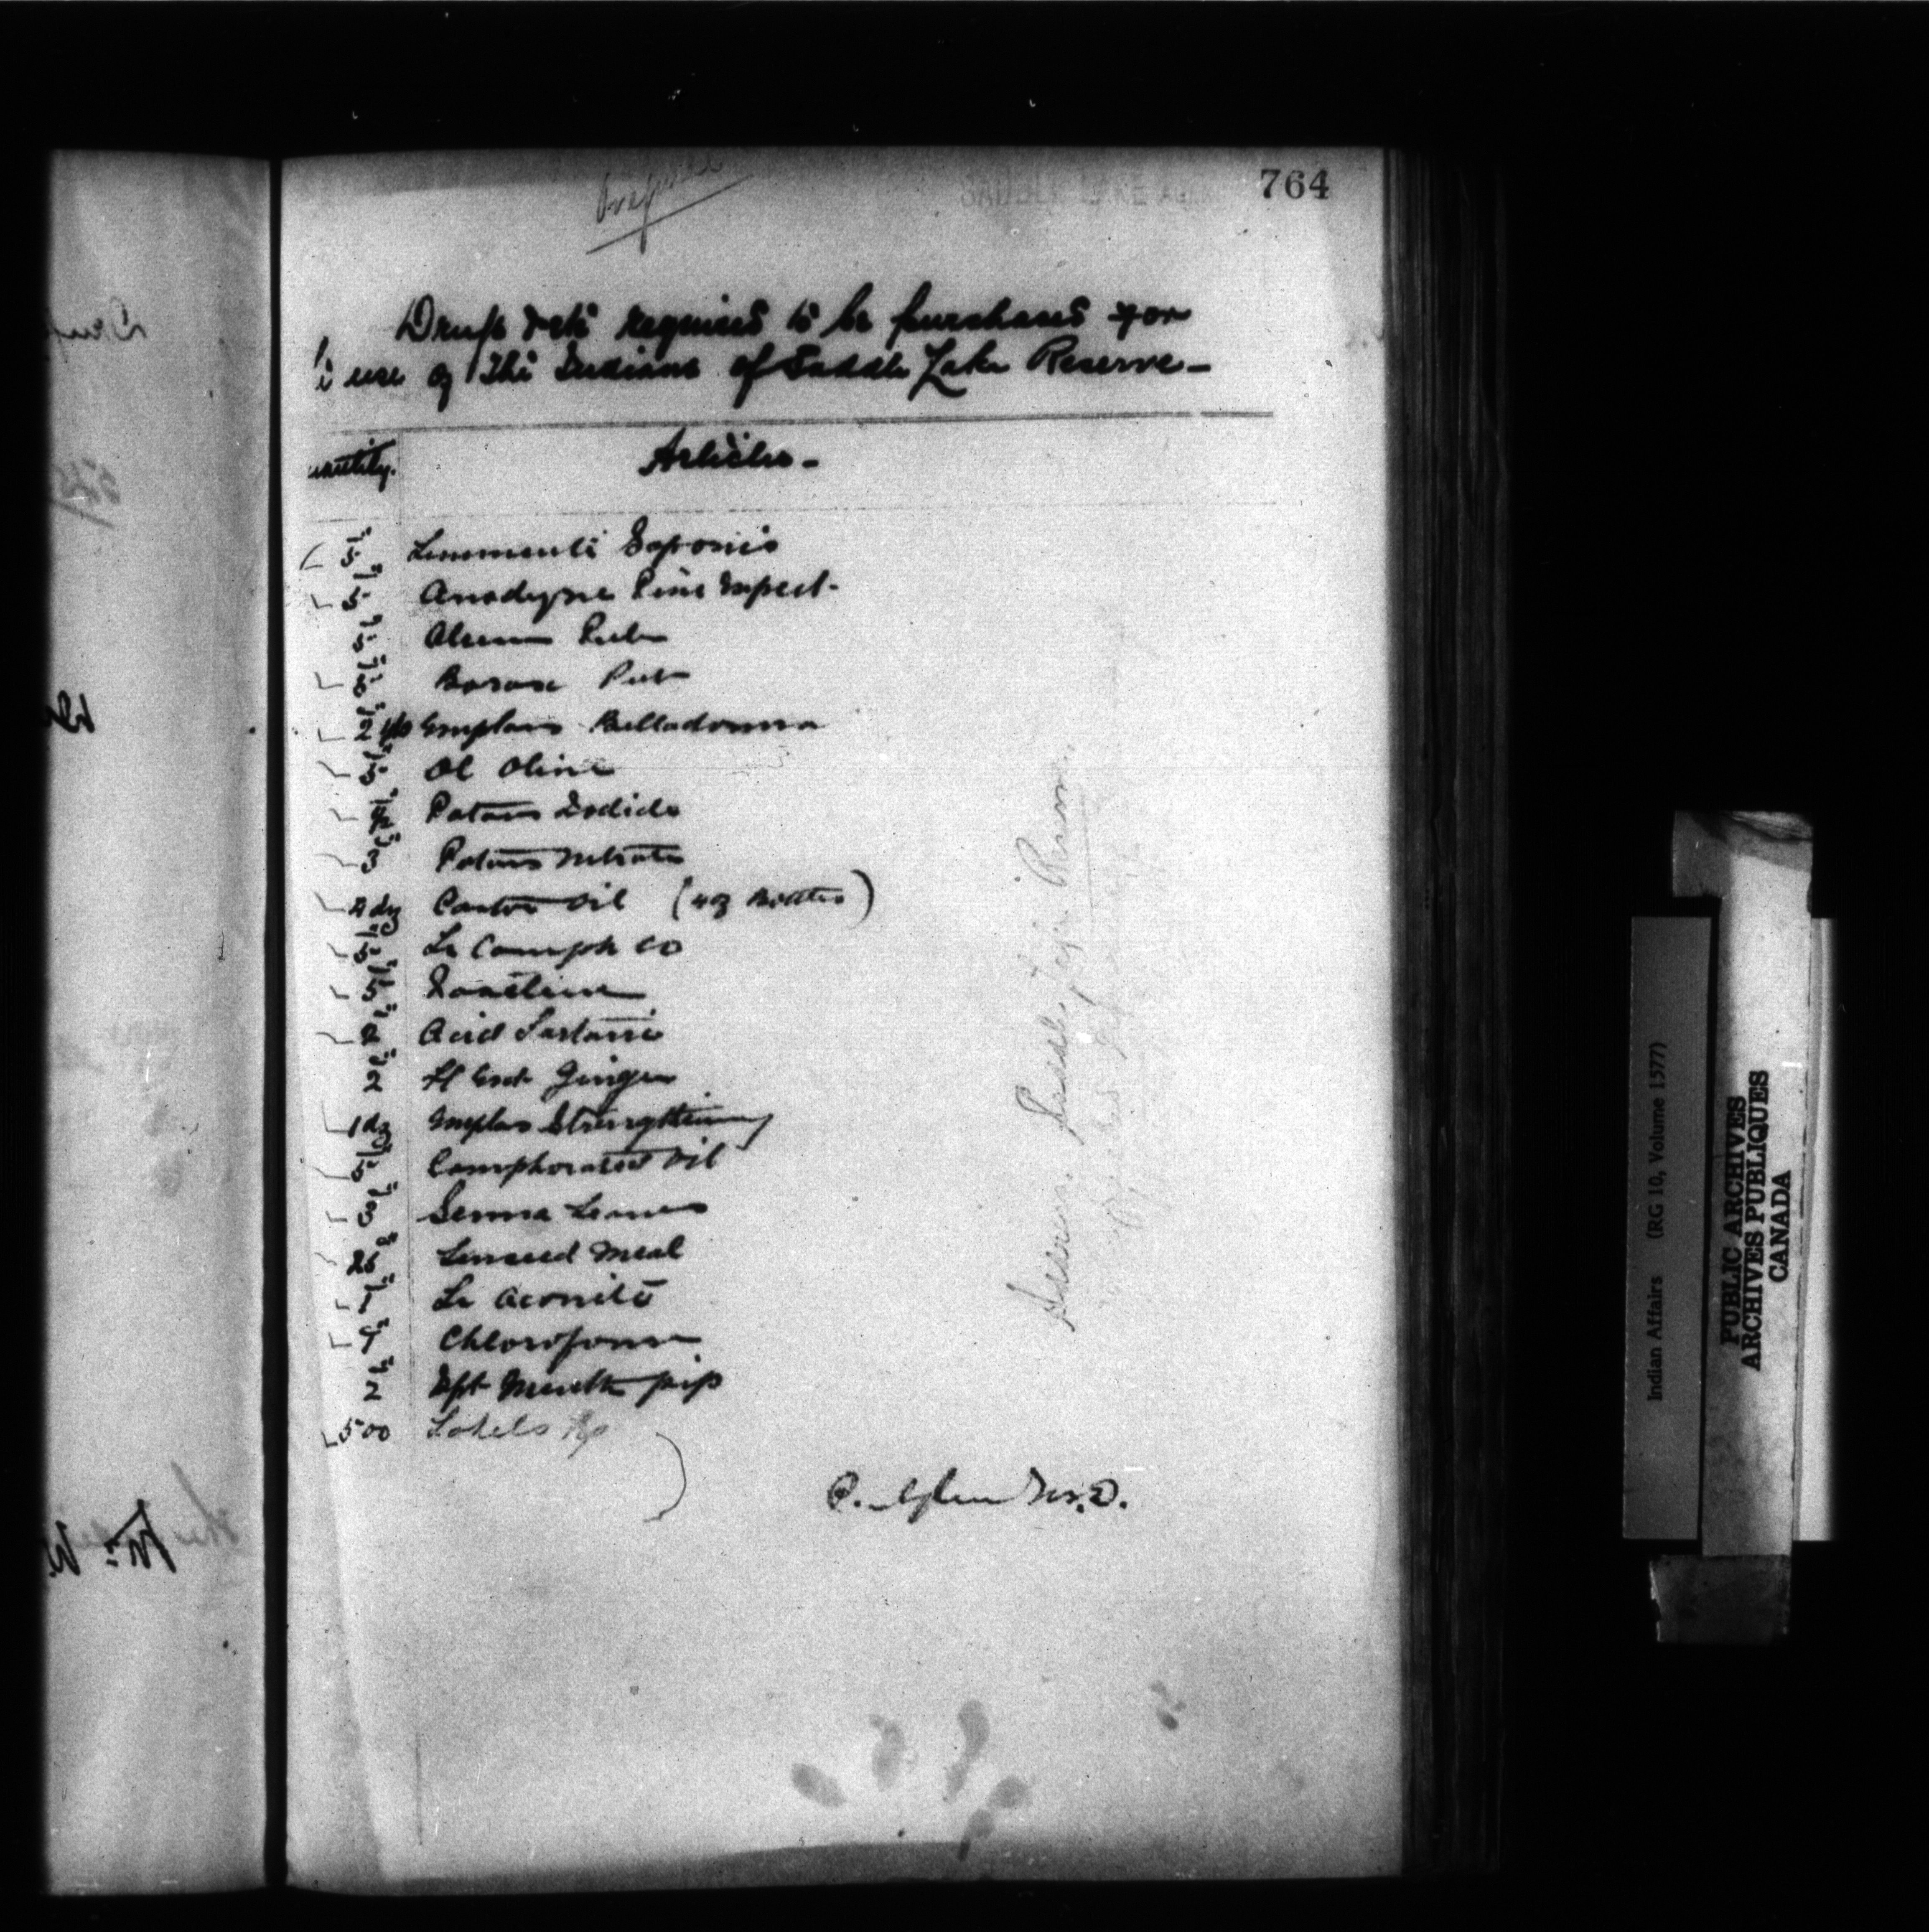 764
SADDLE LAKE
Drugs &etc required to be purchased for
use of the Indians of Saddle Lake Reserve—
uantity. Articles—
5" Linimenti Saponis
5" Anodyne Pine Expect.
5" Alum Pulv
5" Borax Pulv
2 Emplas Belladonna
5" Ol Olive
Potass Iodide
3" Potass Nitrate
4 dz Castor Oil (4oz Bottles)
5" Tr Camph Co
5" Vaseline
2" Acid Tartaric
2" Fl Ext Ginger
1 dz Emplas Strengthening
5" Camphorated Oil
3" Senna Leaves
25" Linseed Meal
1" Tr Aconite
1" Chloroform
2" Spt Menth pip
500 Labels
M.D.
Indian Affairs (RG 10, Volume 1577)
PUBLIC ARCHIVES
ARCHIVES PUBLIQUES
CANADA